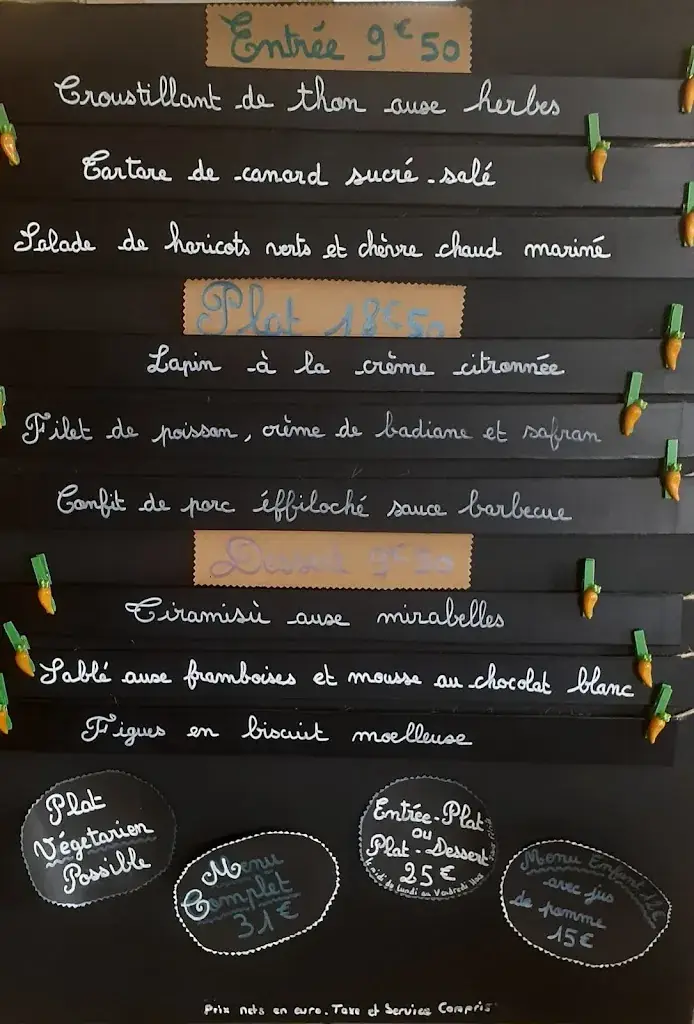 Entrée 9€50
Croustillant de thon auxe herbes
Tartare de canard sucré-salé
Salade de haricots verts et chèvre chaud mariné
Plat 18€50
Lapin à la crème citronnée
Filet de poisson, crème de badiane et safran
Confit de porc éffiloché sauce barbecue
Dessert 9€50
Tiramisù auxe mirabelles
Sablé auxe framboises et mousse au chocolat blanc
Figues en biscuit moelleuxe
Plat
Végétarien
Possible
Menu
Complet
31€
Entrée-Plat
ou
Plat-Dessert
25€
le midi de Lundi au Vendredi
Menu Enfant
avec jus
de pomme
15€
Prix nets en euro. Taxe et Service Compris